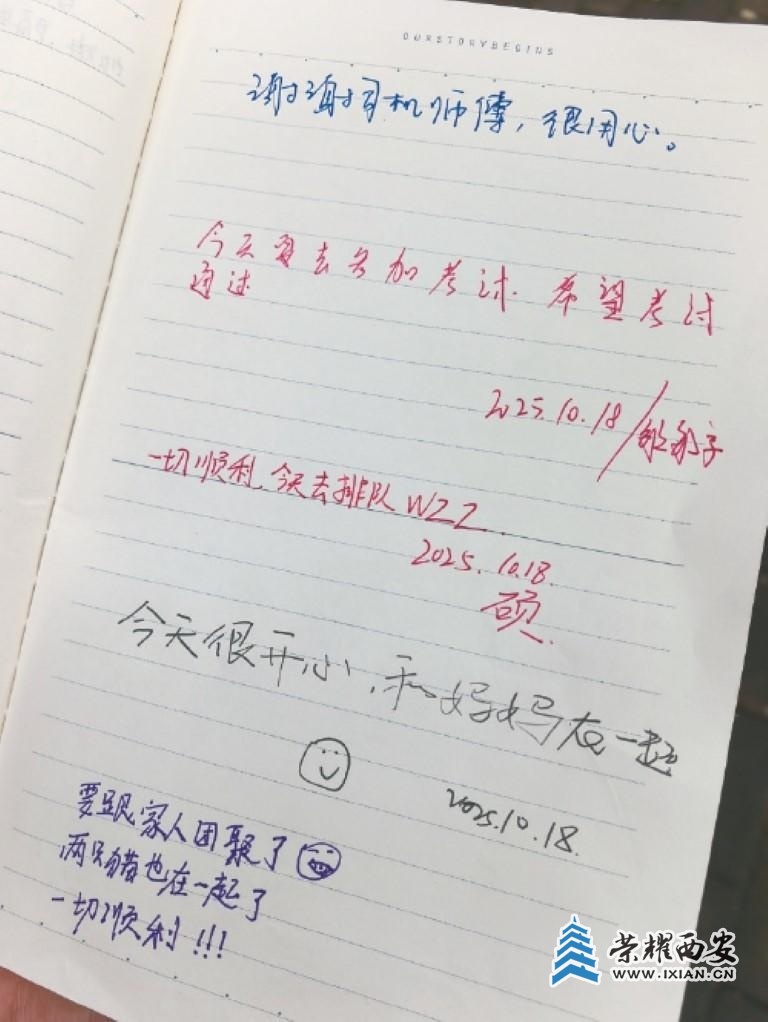 OURSTORYBEGINS
谢谢司机师傅，很用心。
今天要去参加考试.希望考试
通过
2025.10.18/
一切顺利,今天去排队WZZ
2025.10.18.
硕.
今天很开心,和妈妈在一起
2025.10.18.
要跟家人团聚了
两只猫也在一起了
一切顺利!!!
荣耀西安
WWW.IXIAN.CN